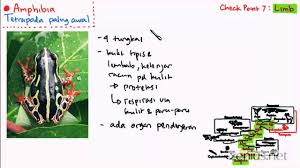 Amphibia
Tetrapoda paling awal
Check Point 7 : Limb
- 4 tungkai
- kulit tipis &
lembab, kelenjar
racun pd kulit
→ proteksi
→ respirasi via
kulit & paru-paru
- ada organ pendengaran
zenius.net